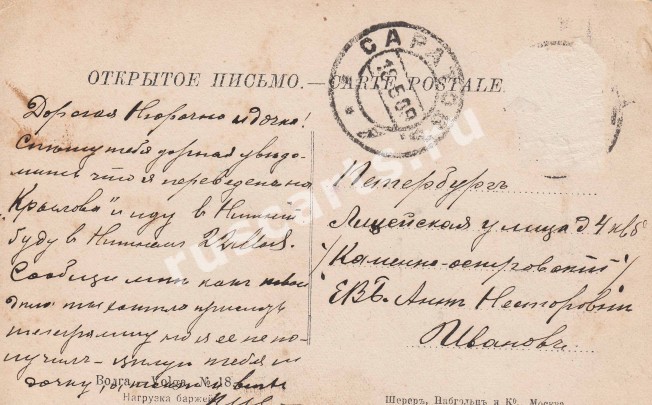 ОТКРЫТОЕ ПИСЬМО. — CARTE POSTALE.
САРАТОВ
18 5 09
Дорогая Нюрочка и дочка!
Спѣшу тебя дорогая увѣдо-
мить что я переведен на
Крылова" и иду в Нижній
буду в Нижнемъ 22 Мая.
Сообщи мнѣ какъ
дѣла ты хотѣла прислать
телеграмму но я ее не по-
лучилъ цѣлую тебя и
дочку
Петербургъ
Лицейская улица д 4 кв 6
/Каменно-островскій/
ЕВБ. Аннѣ Несторовнѣ
Ивановой
Волга. — Volga. № 18.
Нагрузка баржей
Шереръ, Набгольцъ и Ко. Москва
ruscards.ru